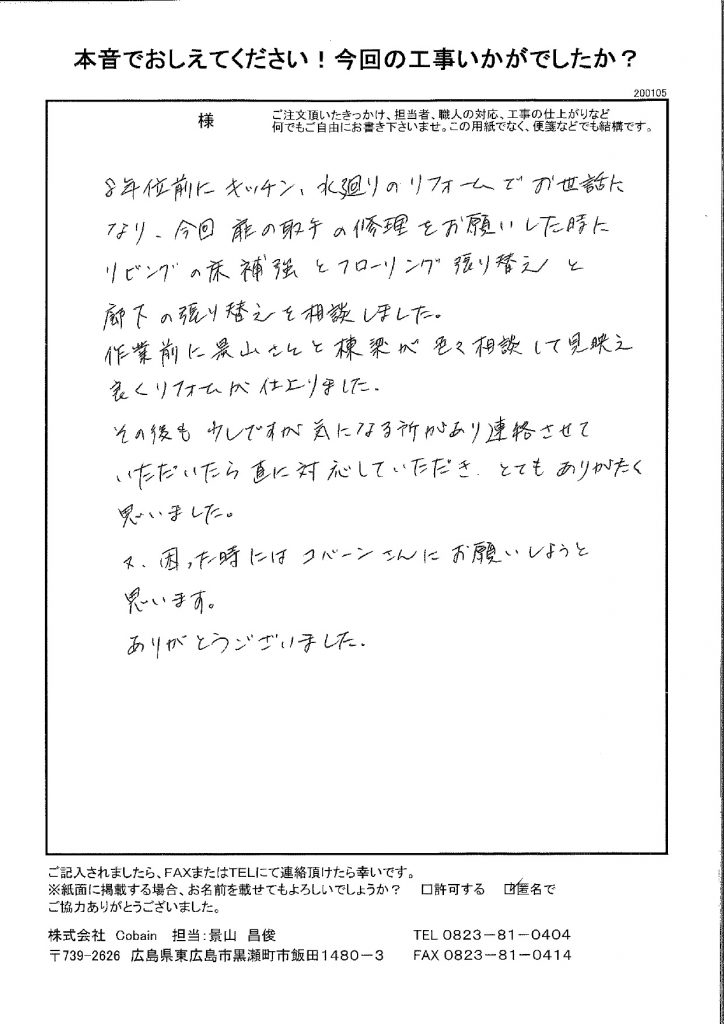 本音でおしえてください！今回の工事いかがでしたか？
200105
様
ご注文頂いたきっかけ、担当者、職人の対応、工事の仕上がりなど
何でもご自由にお書き下さいませ。この用紙でなく、便箋などでも結構です。
8年位前にキッチン、水廻りのリフォームでお世話に
なり、今回扉の取手の修理をお願いした時に
リビングの床補強とフローリング張り替えと
廊下の張り替えを相談しました。
作業前に景山さんと棟梁が色々相談して見映え
良くリフォームが仕上りました。
その後も少しですが気になる所があり連絡させて
いただいたら直に対応していただき、とてもありがたく
思いました。
又、困った時にはコバーンさんにお願いしようと
思います。
ありがとうございました。
ご記入されましたら、FAXまたはTELにて連絡頂けたら幸いです。
※紙面に掲載する場合、お名前を載せてもよろしいでしょうか？ □許可する ☑匿名で
ご協力ありがとうございました。
株式会社 Cobain 担当：景山 昌俊 TEL 0823-81-0404
〒739-2626 広島県東広島市黒瀬町市飯田1480-3 FAX 0823-81-0414